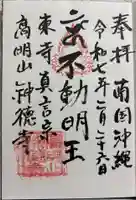 奉拝
南国沖縄
令和七年二月二十六日
不動明王
東寺真言宗
高明山神德寺